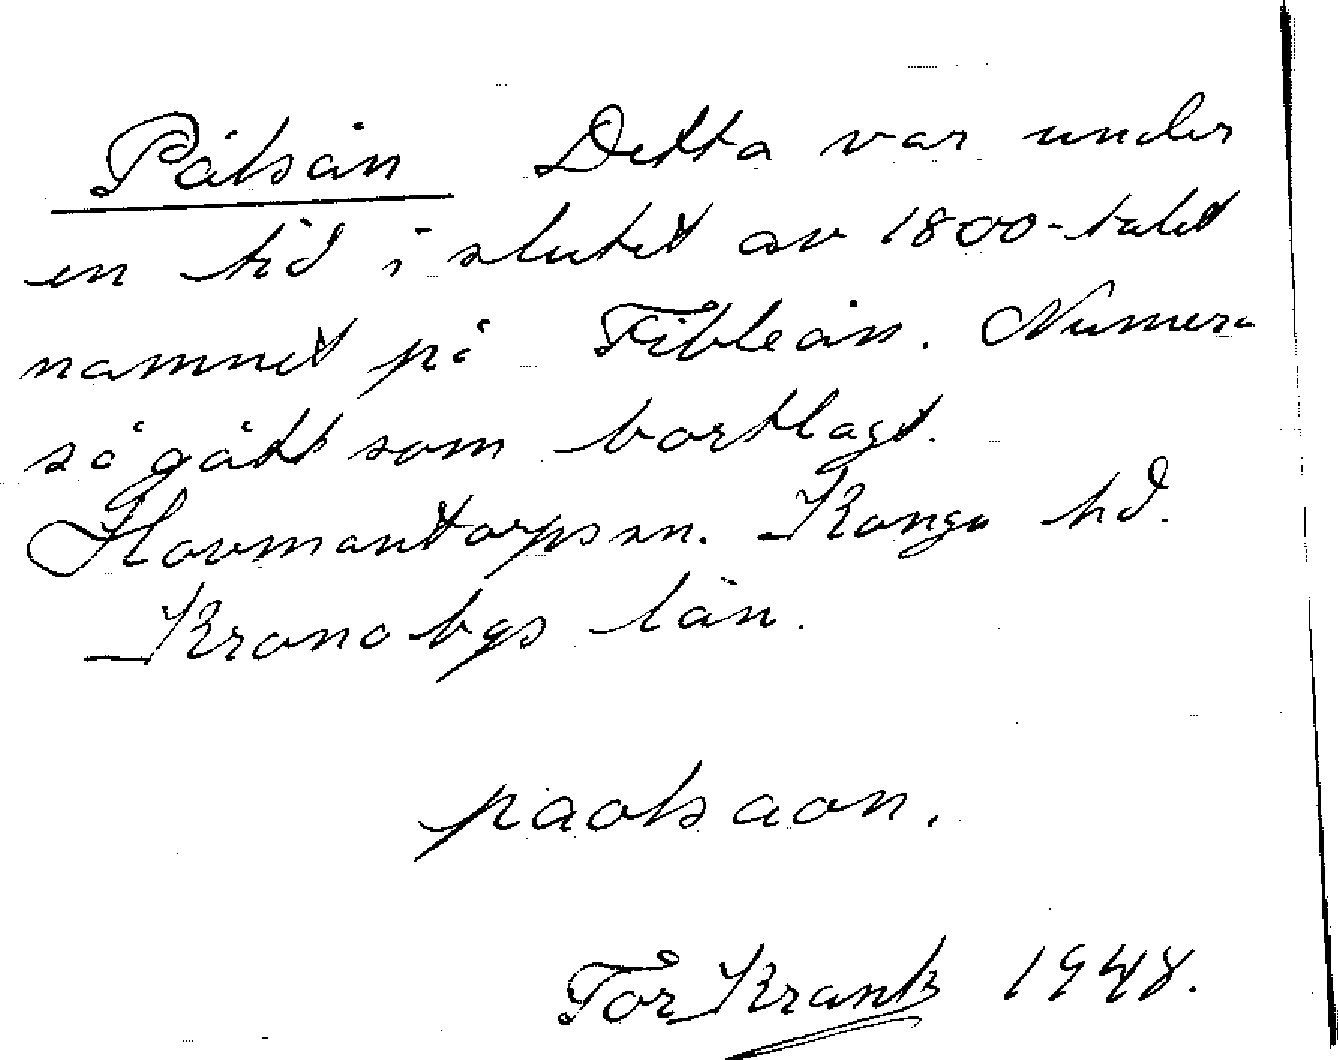 Påtsån Detta var under
en tid i slutet av 1800-talet
namnet på Fibleån. Numera
så gått som bortlagt.
Hovmantorps sn. Konga hd.
Kronobgs län.
paotsaon.
Tor Krank 1948.